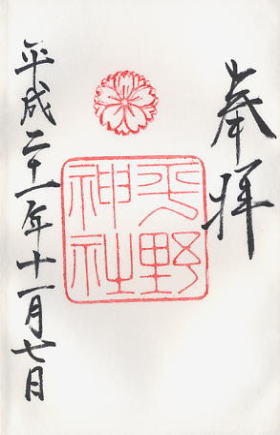 奉拝
平野
神社
平成二十一年十一月七日